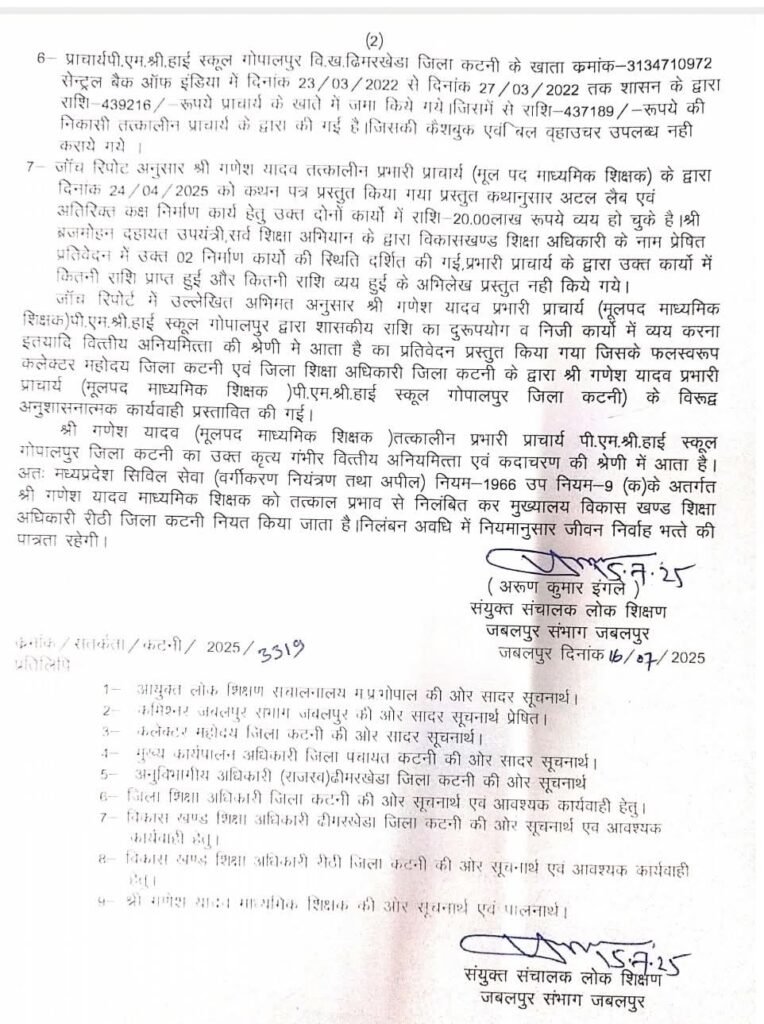 (2)
6– प्राचार्यपी.एम.श्री.हाई स्कूल गोपालपुर वि.ख.ढिमरखेडा जिला कटनी के खाता क्रमांक–3134710972
सेन्ट्रल बैक ऑफ इंडिया में दिनांक 23/03/2022 से दिनांक 27/03/2022 तक शासन के द्वारा
राशि–439216/–रूपये प्राचार्य के खाते में जमा किये गये।जिसमें से राशि–437189/–रूपये की
निकासी तत्कालीन प्राचार्य के द्वारा की गई है।जिसकी कैशबुक एवं बिल व्हाउचर उपलब्ध नही
कराये गये ।
7– जॉंच रिपोट अनुसार श्री गणेश यादव तत्कालीन प्रभारी प्राचार्य (मूल पद माध्यमिक शिक्षक) के द्वारा
दिनांक 24/04/2025 को कथन पत्र प्रस्तुत किया गया प्रस्तुत कथानुसार अटल लैब एवं
अतिरिक्त कक्ष निर्माण कार्य हेतु उक्त दोनों कार्यो में राशि–20.00लाख रूपये व्यय हो चुके है।श्री
ब्रजमोहन दहायत उपयंत्री,सर्व शिक्षा अभियान के द्वारा विकासखण्ड शिक्षा अधिकारी के नाम प्रेषित
प्रतिवेदन में उक्त 02 निर्माण कार्यो की स्थिति दर्शित की गई,प्रभारी प्राचार्य के द्वारा उक्त कार्यो में
कितनी राशि प्राप्त हुई और कितनी राशि व्यय हुई के अभिलेख प्रस्तुत नही किये गये।
जॉंच रिपोर्ट में उल्लेखित अभिमत अनुसार श्री गणेश यादव प्रभारी प्राचार्य (मूलपद माध्यमिक
शिक्षक)पी.एम.श्री.हाई स्कूल गोपालपुर द्वारा शासकीय राशि का दुरूपयोग व निजी कार्यो में व्यय करना
इतयादि वित्तीय अनियमित्ता की श्रेणी मे आता है का प्रतिवेदन प्रस्तुत किया गया जिसके फलस्वरूप
कलेक्टर महोदय जिला कटनी एवं जिला शिक्षा अधिकारी जिला कटनी के द्वारा श्री गणेश यादव प्रभारी
प्राचार्य (मूलपद माध्यमिक शिक्षक )पी.एम.श्री.हाई स्कूल गोपालपुर जिला कटनी) के विरूद्व
अनुशासनात्मक कार्यवाही प्रस्तावित की गई।
श्री गणेश यादव (मूलपद माध्यमिक शिक्षक )तत्कालीन प्रभारी प्राचार्य पी.एम.श्री.हाई स्कूल
गोपालपुर जिला कटनी का उक्त कृत्य गंभीर वित्तीय अनियमित्ता एवं कदाचरण की श्रेणी में आता है।
अतः मध्यप्रदेश सिविल सेवा (वर्गीकरण नियंत्रण तथा अपील) नियम–1966 उप नियम–9 (क)के अतर्गत
श्री गणेश यादव माध्यमिक शिक्षक को तत्काल प्रभाव से निलंबित कर मुख्यालय विकास खण्ड शिक्षा
अधिकारी रीठी जिला कटनी नियत किया जाता है।निलंबन अवधि में नियमानुसार जीवन निर्वाह भत्ते की
पात्रता रहेगी।
15.7.25
( अरूण कुमार इंगले )
संयुक्त संचालक लोक शिक्षण
जबलपुर संभाग जबलपुर
क्रमांक/सतर्कता/कटनी/ 2025/3319
जबलपुर दिनांक 16/07/2025
प्रतिलिपि
1– आयुक्त लोक शिक्षण संचालनालय म.प्र.भोपाल की ओर सादर सूचनार्थ।
2– कमिश्नर जबलपुर संभाग जबलपुर की ओर सादर सूचनार्थ प्रेषित।
3– कलेक्टर महोदय जिला कटनी की ओर सादर सूचनार्थ।
4– मुख्य कार्यपालन अधिकारी जिला पंचायत कटनी की ओर सादर सूचनार्थ।
5– अनुविभागीय अधिकारी (राजस्व)ढीमरखेडा जिला कटनी की ओर सूचनार्थ
6– जिला शिक्षा अधिकारी जिला कटनी की ओर सूचनार्थ एवं आवश्यक कार्यवाही हेतु।
7– विकास खण्ड शिक्षा अधिकारी ढीमरखेडा जिला कटनी की ओर सूचनार्थ एवं आवश्यक
कार्यवाही हेतु।
8– विकास खण्ड शिक्षा अधिकारी रीठी जिला कटनी की ओर सूचनार्थ एवं आवश्यक कार्यवाही
हेतु।
9– श्री गणेश यादव माध्यमिक शिक्षक की ओर सूचनार्थ एवं पालनार्थ।
15.7.25
संयुक्त संचालक लोक शिक्षण
जबलपुर संभाग जबलपुर